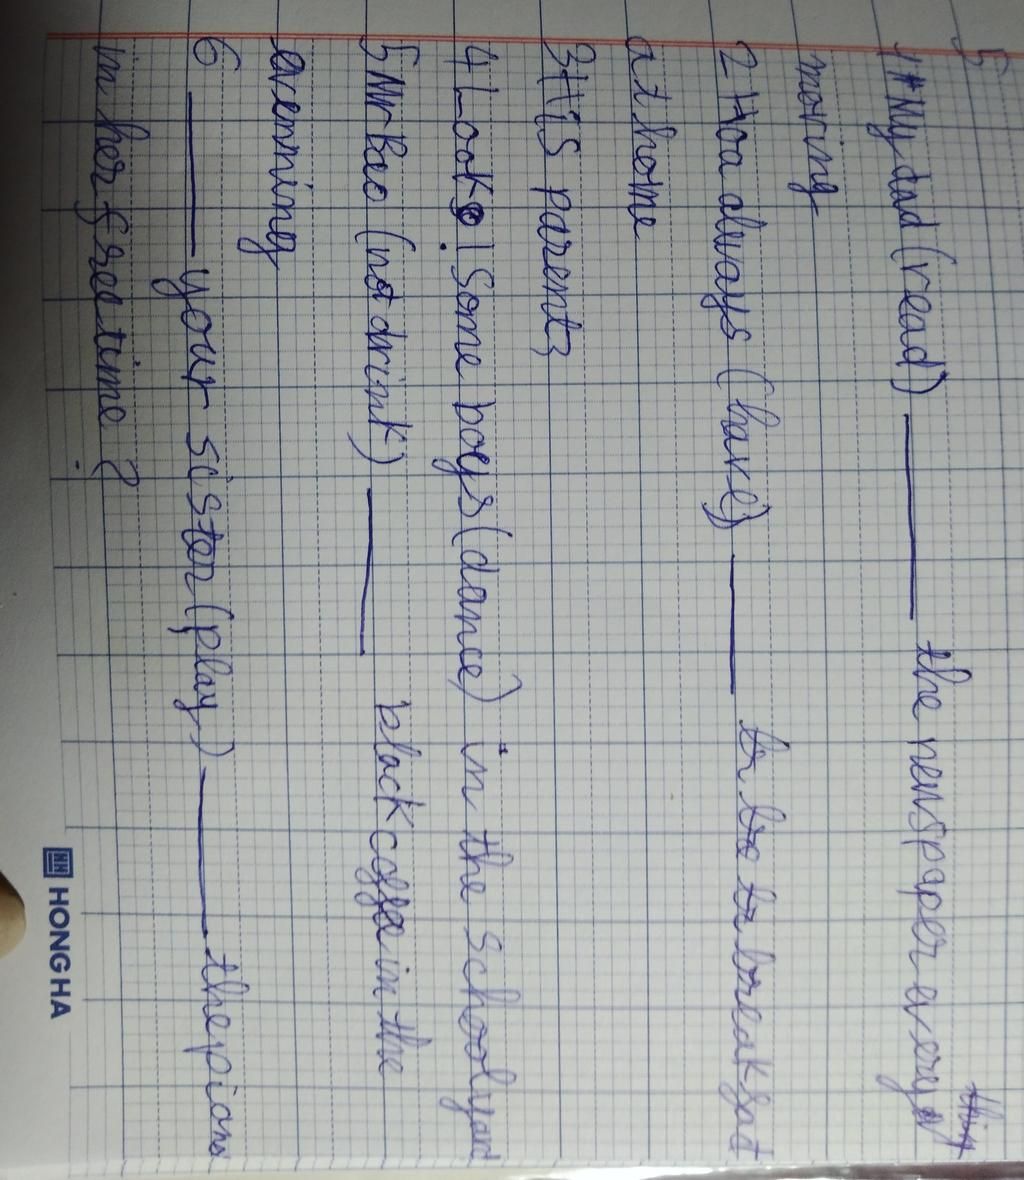 5
1 My dad (read) ______ the newspaper every thing
moring
2 Hoa always (have) ______ tr bo tr breakfast
at home
3 His parents
4 Look ! Some boys (dance) in the schoolyard
5 Mr Bao (not drink) ______ black coffe in the
evenning
6 ______ your sister (play) ______ the piano
in her free time ?
HONG HA